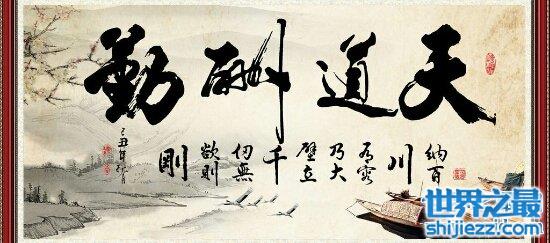 天道酬勤
納百
川
有容
乃大
壁立
千
仞無
欲則
剛
己丑年
世界之最
shijiezz.com